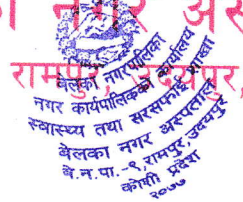 का नगर अस्
रामपुर, उदयपुर,
बेलका नगरपालिका
नगर कार्यपालिकाको कार्यालय
स्वास्थ्य तथा सरसफाई शाखा
बेलका नगर अस्पताल
बे.न.पा.-९, रामपुर, उदयपुर
कोशी प्रदेश
२०७७